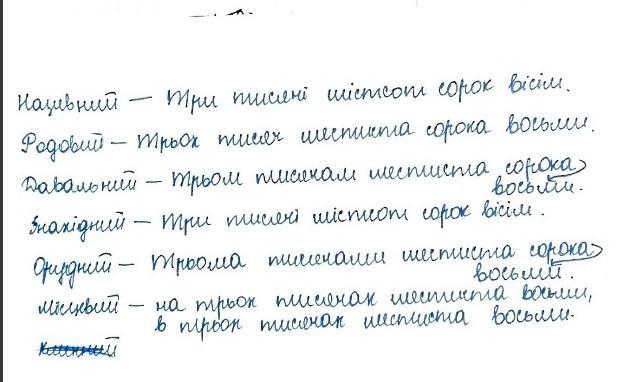 Називний — Три тисячі шістсот сорок вісім.
Родовий — Трьох тисяч шестиста сорока восьми.
Давальний — Трьом тисячам шестиста сорока
восьми.
Знахідний — Три тисячі шістсот сорок вісім.
Орудний — Трьома тисячами шестиста сорока
восьми.
Місцевий — на трьох тисячах шестиста восьми,
в трьох тисячах шестиста восьми.